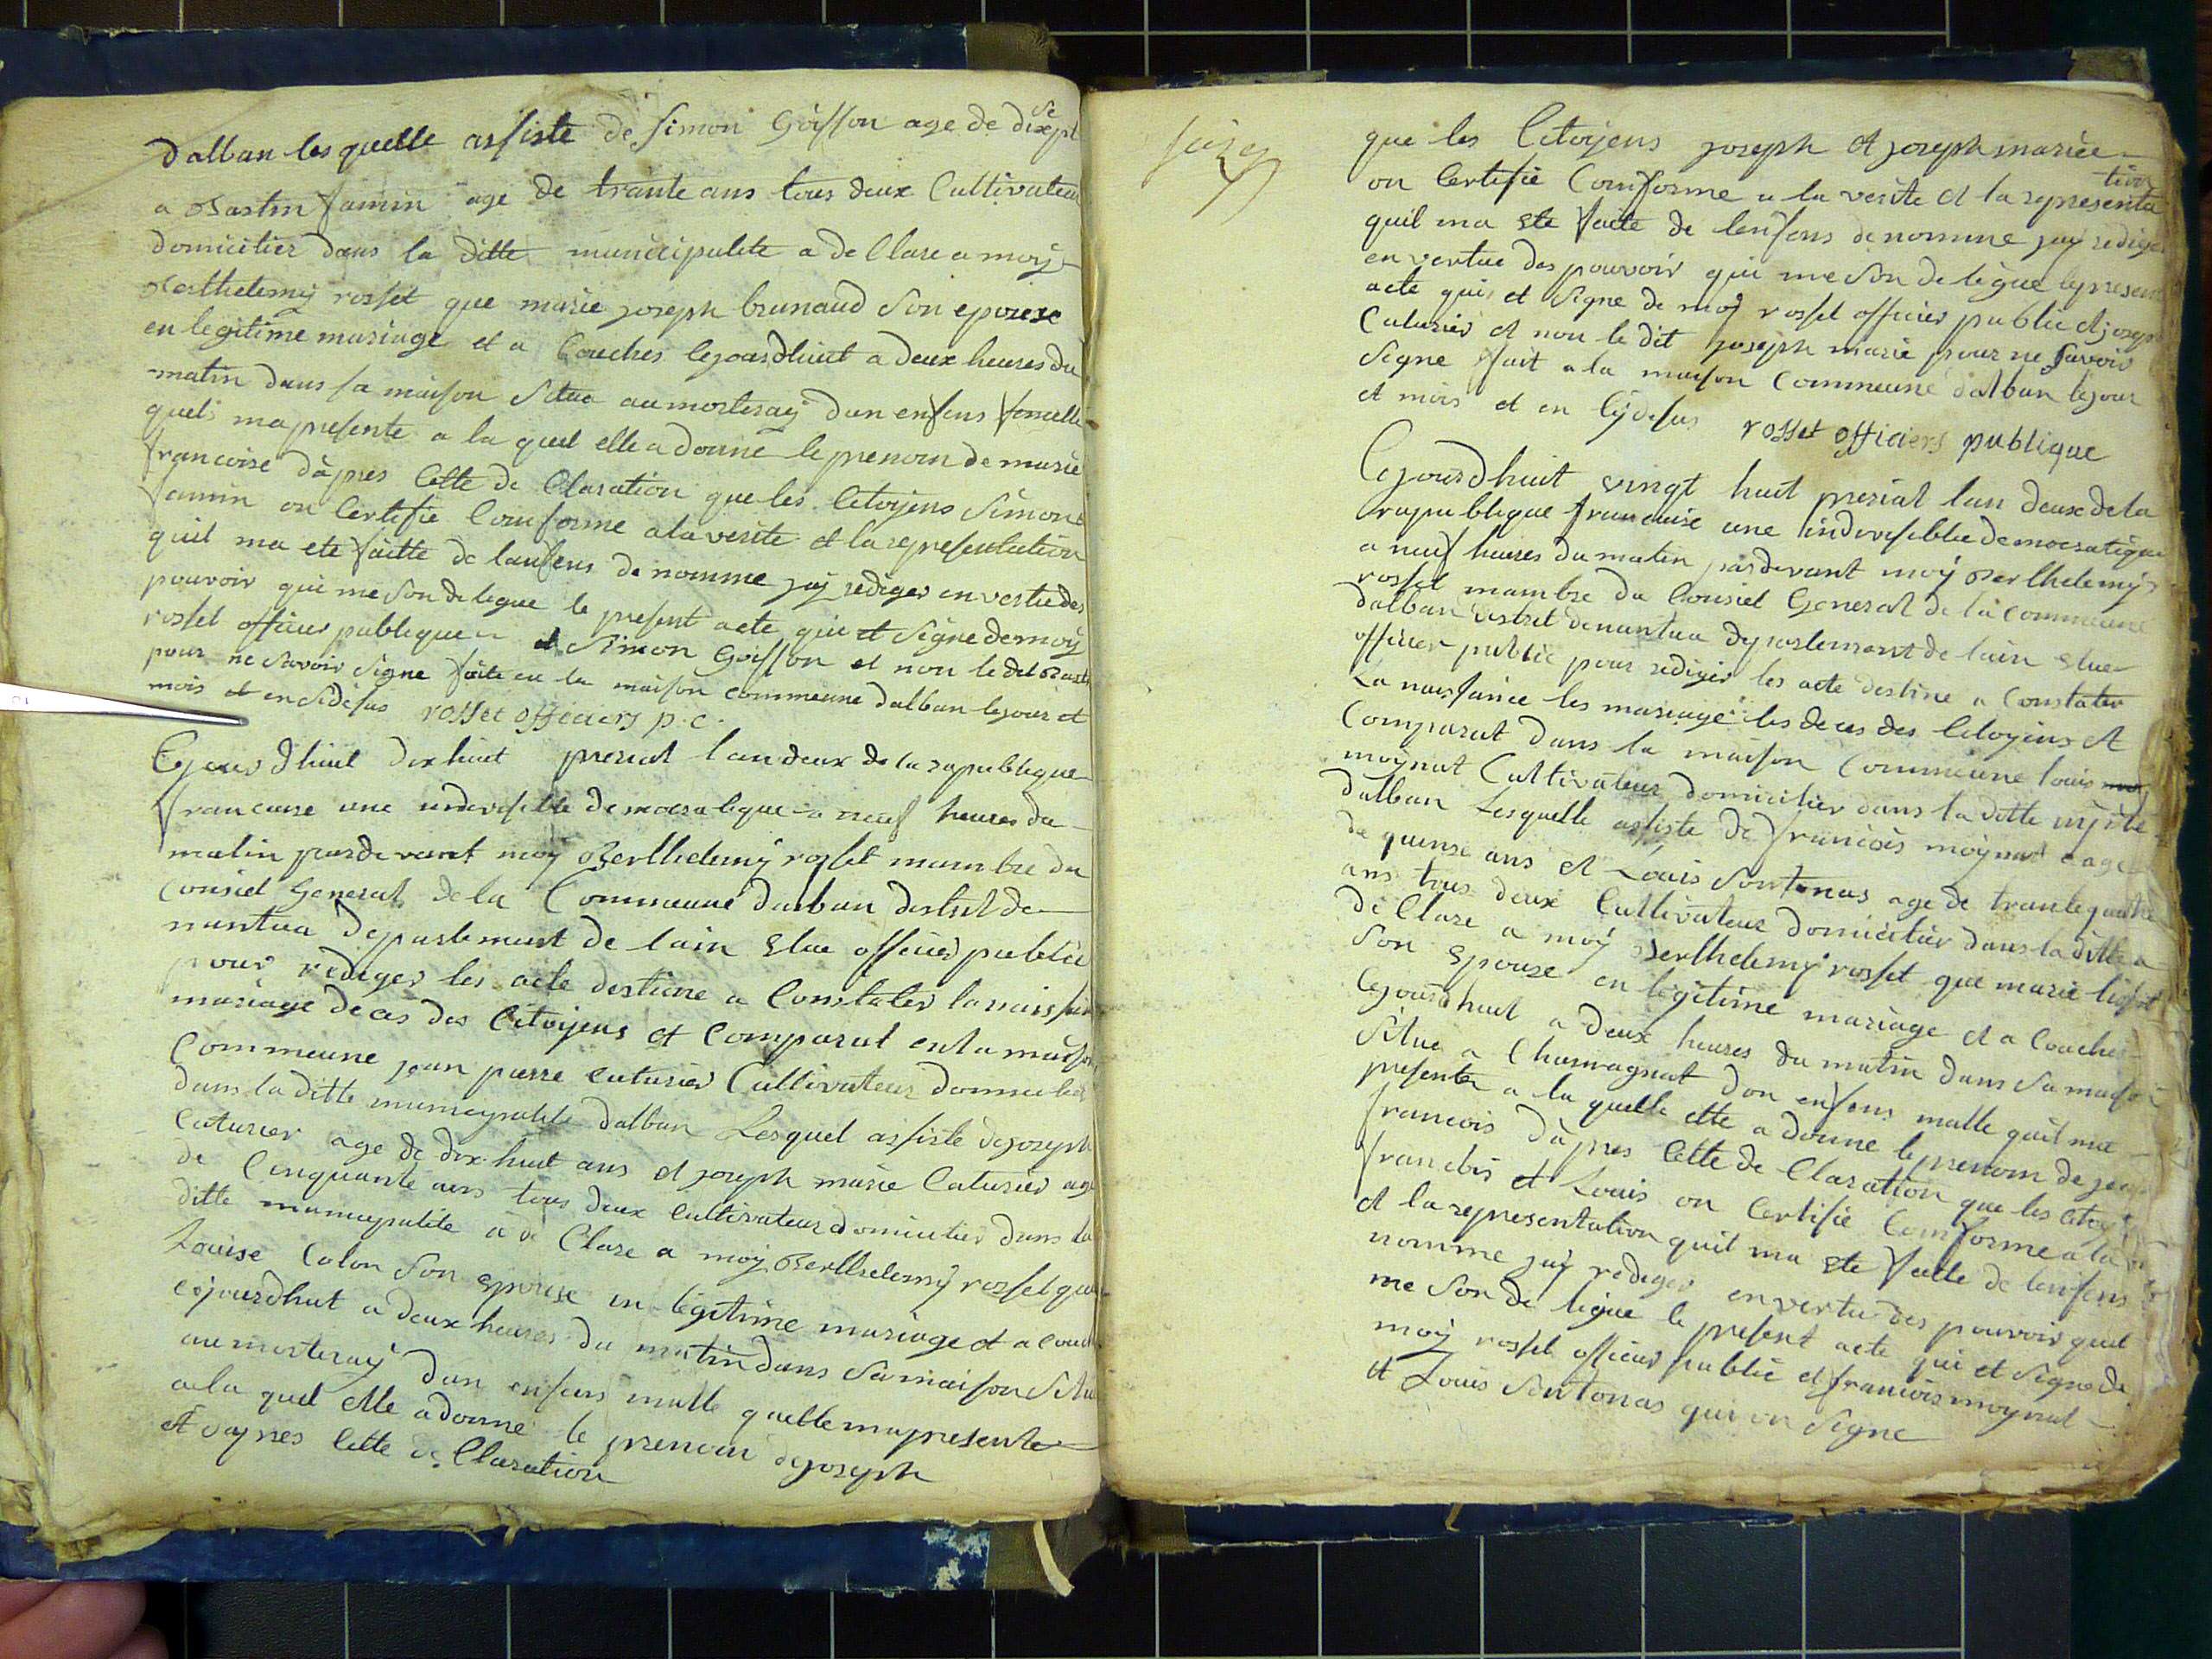 Dalban lesquelle assiste de simon Goisson age de dixsept
a Bastin famin age de trante ans tous deux Cultivateur
domicilier dans la ditte municipalite a de Clare a moy
Berthelemy rosset que marie joseph brunaud Son epouse
en legitime mariage et a Couches cejourdhuit a deux heures du
matin dans sa maison Situa au morteray dun enfens femelle
quel ma presente a la quel elle a donné le prenom de marie
francoise dàpres Cette de Claration que les Citoyens Simon
famin on Certifie Comforme a la verite et la representation
quil ma ete faitte de lanfens de nomme jay rediger en vertu des
pouvoir qui me Son delegue le present acte qui et Signe de moy
rosset officier publique et Simon Goisson et non le dit Basti
pour ne Savoir Signe faite en la maison commeune dalban le jour et
mois et en Sidesus rosset officiers p.c.
Cejour dhuit dixhuit prerial lan deux de la republique
francaise une indivisible democratique a neuf heures du
matin pardevant moy Berthelemy rosset mambre du
Consiel General de la Commeune dalban destrit de
nantua departement de lain elue officier publie
pour rediger les acte destine a Constater la naissan
mariage deces des Citoyens et Comparut en la maison
Commeune jean pierre cuturier Cultivateur domicilier
dans la ditte municipalite dalban Lesquel assiste de joseph
Caturier age de dix huit ans et joseph marie Caturier age
de Cinquante ans tous deux cultivateur domicilier dans la
ditte municipalite a de Clare a moy Berthelemy rosset que
Louise Colon Son epouse en legitime mariage et a couch
cejourdhut a deux heures du matin dans Sa maison Situe
au morteray dun enfens malle quelle ma presente
a la quel elle a donné le prenom de joseph
et dapres Cette de Claration
que les Citoyens joseph et joseph mariée
on Certifie Comforme a la verite et la representa tion
quil ma ete faite de lenfens de nomme jay rediger
en vertue des pouvoir qui me Son de legue le present
acte qui et Signe de moy rosset officier publie et joseph
Caturier et non le dit joseph marie pour ne Savoir
Signe fait a la maison Commeune dalban le jour
et mois et en Cy desus rosset officiers publique
Cejourdhuit vingt huit prerial lan deux de la
republique francaise une indivisible democratique
a neuf heures du matin pardevant moy Berthelemy
rosset mambre du Consiel General de la commeune
dalban destrit de nantua departement de lain elue
officier public pour rediger les acte destine a Constater
La naissance les mariage les deces des Citoyens et
Comparut dans la maison Commeune louis
moynat Cultivateur domicilier dans la ditte
dalban Lesquelle assiste de francois moynat age
de quinse ans et Louis Sontonas age de trante quatre
ans tous deux Cultivateur domicilier dans la ditte a
de Clare a moy Berthelemy rosset que marie
Son epouse en legitime mariage et a Couches
Cejourdhuit a deux heures du matin dans Sa maison
Situe a Chamagnat don enfens malle quil ma
presente a la quelle elle a donne le prenom de jean
francois dàpres Cette de Claration que les Citoye
francois et Louis on Certifie Comforme a la
et la representation quil ma ete faitte de lenfens
nomme jay rediger en vertu des pouvoir quil
me Son de legue le present acte qui et Signe de
moy rosset officier publie et francois moynat
et Louis Sontonas qui on Signe